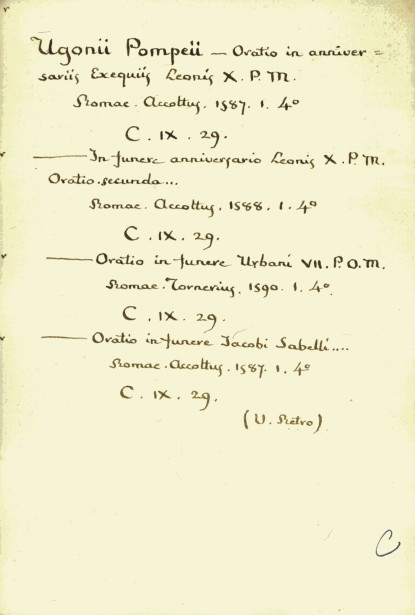 Ugonii Pompeii — Oratio in anniver=
sariis Exequiis Leonis X. P. M.
Romae. Accoltus. 1587. 1. 4º
C. IX. 29.
——— In funere anniversario Leonis X. P. M.
Oratio secunda...
Romae. Accoltus. 1588. 1. 4º
C. IX. 29.
——— Oratio in funere Urbani VII. P. O. M.
Romae. Tornerius. 1590. 1. 4º.
C. IX. 29.
——— Oratio in funere Jacobi Sabelli....
Romae. Accoltus. 1587. 1. 4º
C. IX. 29.
(U. Pietro)
C